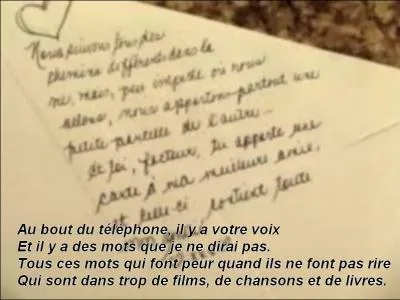 Nous suivons tous des
chemins différents dans la
vie, mais, peu importe où nous
allons, nous apportons partout une
petite parcelle de l'autre...
toi, facteur, tu apporte une
carte à ma meilleure amie,
et celle-ci, contient toute
Au bout du téléphone, il y a votre voix
Et il y a des mots que je ne dirai pas.
Tous ces mots qui font peur quand ils ne font pas rire
Qui sont dans trop de films, de chansons et de livres.